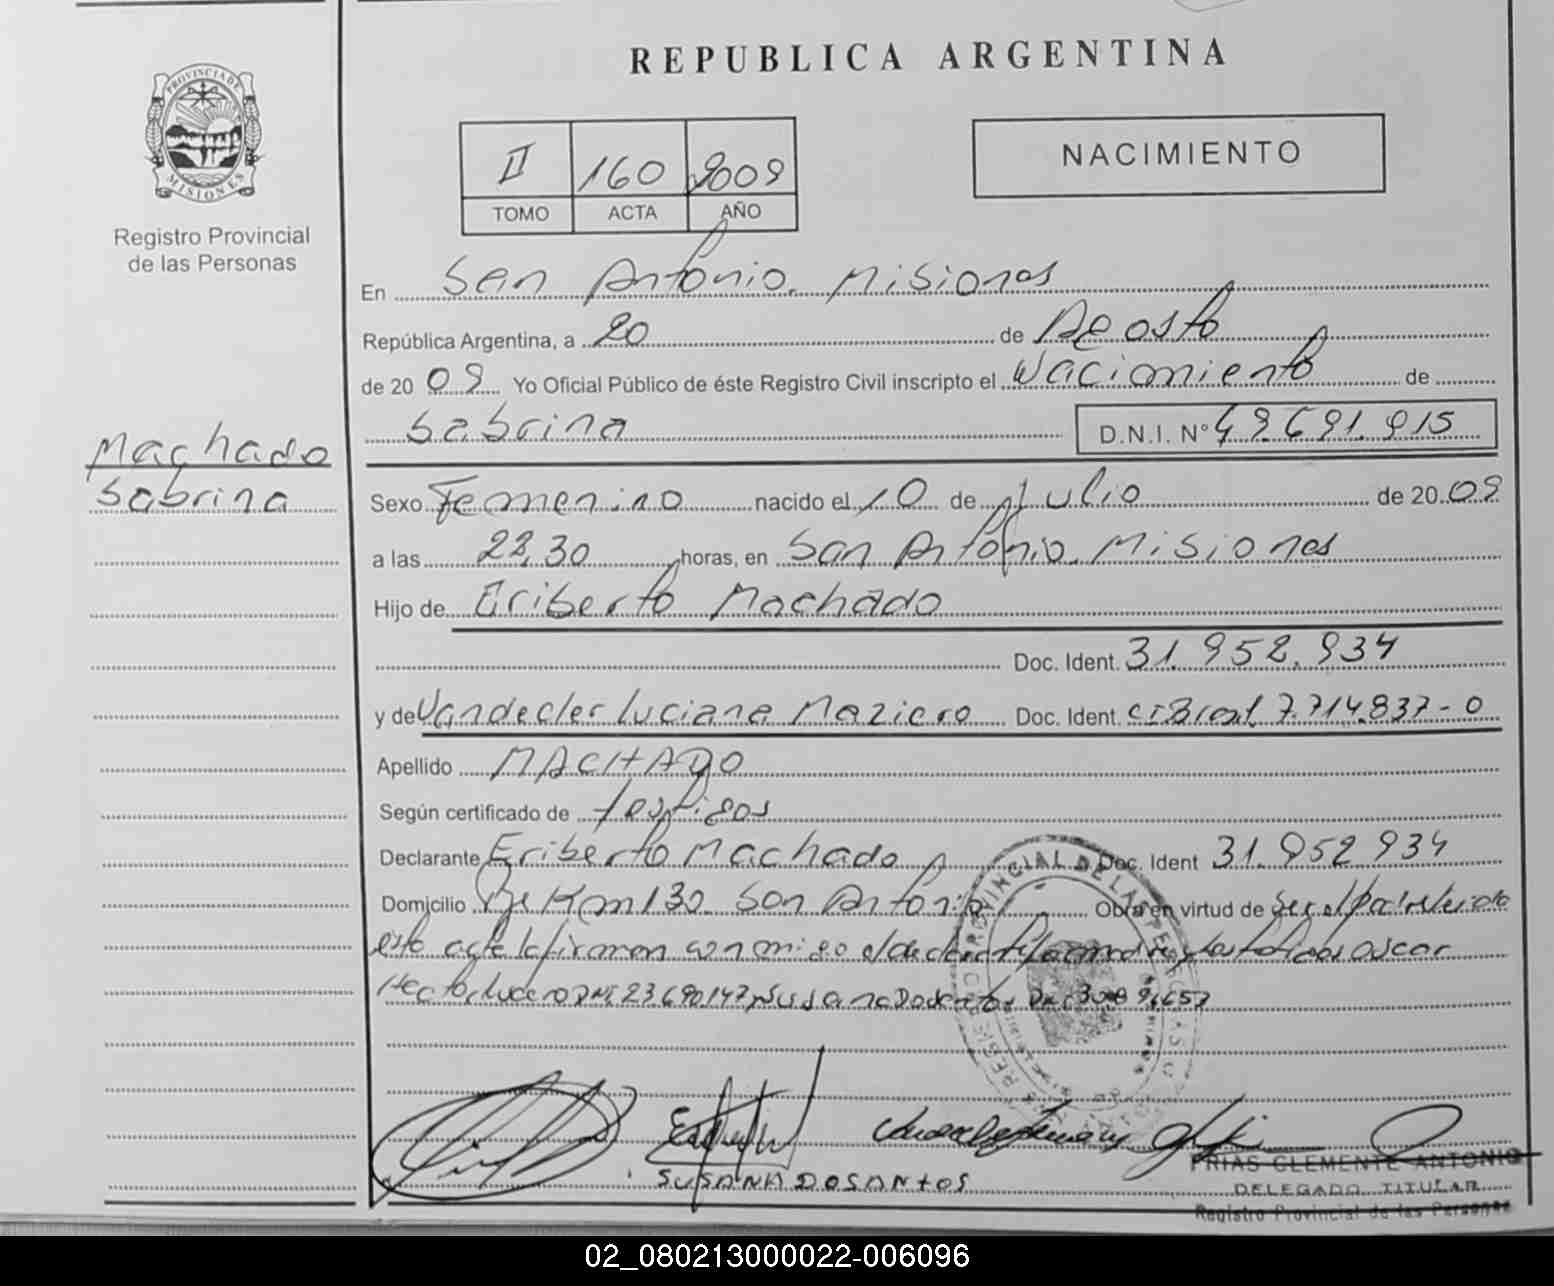 REPUBLICA ARGENTINA
PROVINCIA DE MISIONES
Registro Provincial
de las Personas
II 160 2009
TOMO ACTA AÑO
NACIMIENTO
En San Antonio. Misiones
República Argentina, a 20 de Agosto
de 20 09 Yo Oficial Público de éste Registro Civil inscripto el Nacimiento de
Sabrina D.N.I. N° 49.691.915
Machado
Sabrina
Sexo Femenino nacido el 10 de Julio de 20 09
a las 22,30 horas, en San Antonio. Misiones
Hijo de Eriberto Machado
Doc. Ident. 31.952.934
y de Vandecler Luciana Maziero Doc. Ident. CI Brasil 7.714.837-0
Apellido MACHADO
Según certificado de testigos
Declarante Eriberto Machado Doc. Ident 31.952 934
Domicilio Km 130. San Antonio Obra en virtud de ser el padre
este acta la firman conmigo el declarante testigos Oscar
Hector Lucero DNI 23690147 y Susana Dos
SUSANA DOSANTOS
FRIAS CLEMENTE ANTONIO
DELEGADO TITULAR
Registro Provincial de las Personas
02_080213000022-006096